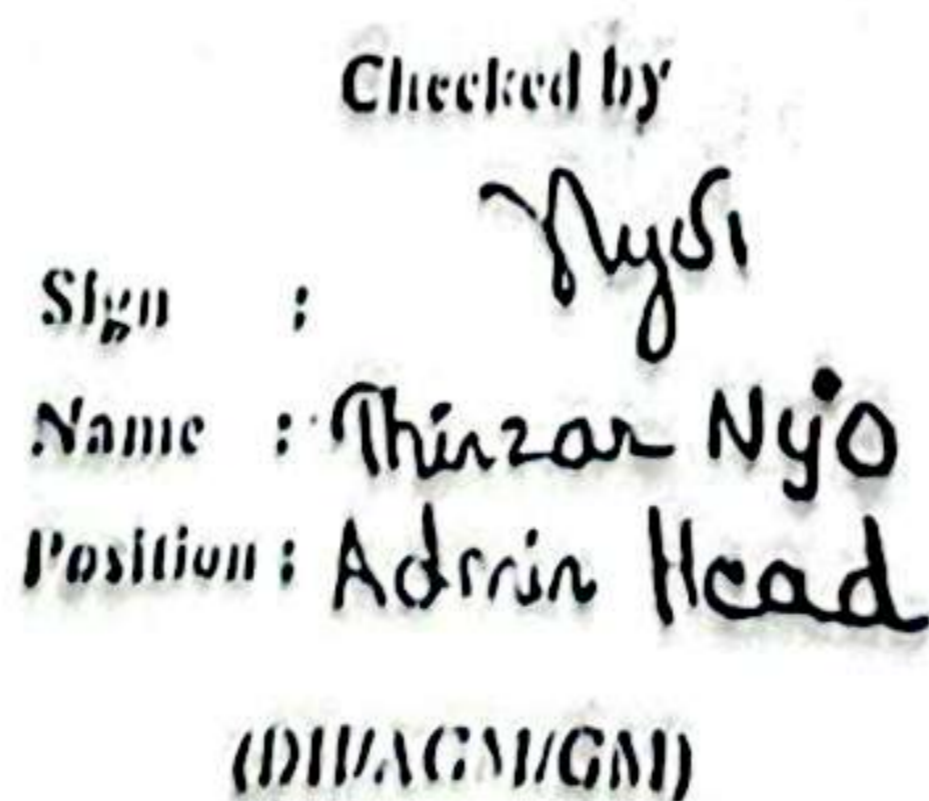 Checked by
Sign :
Name : Thinzar Nyo
Position : Admin Head
(DH/AGM/GM)